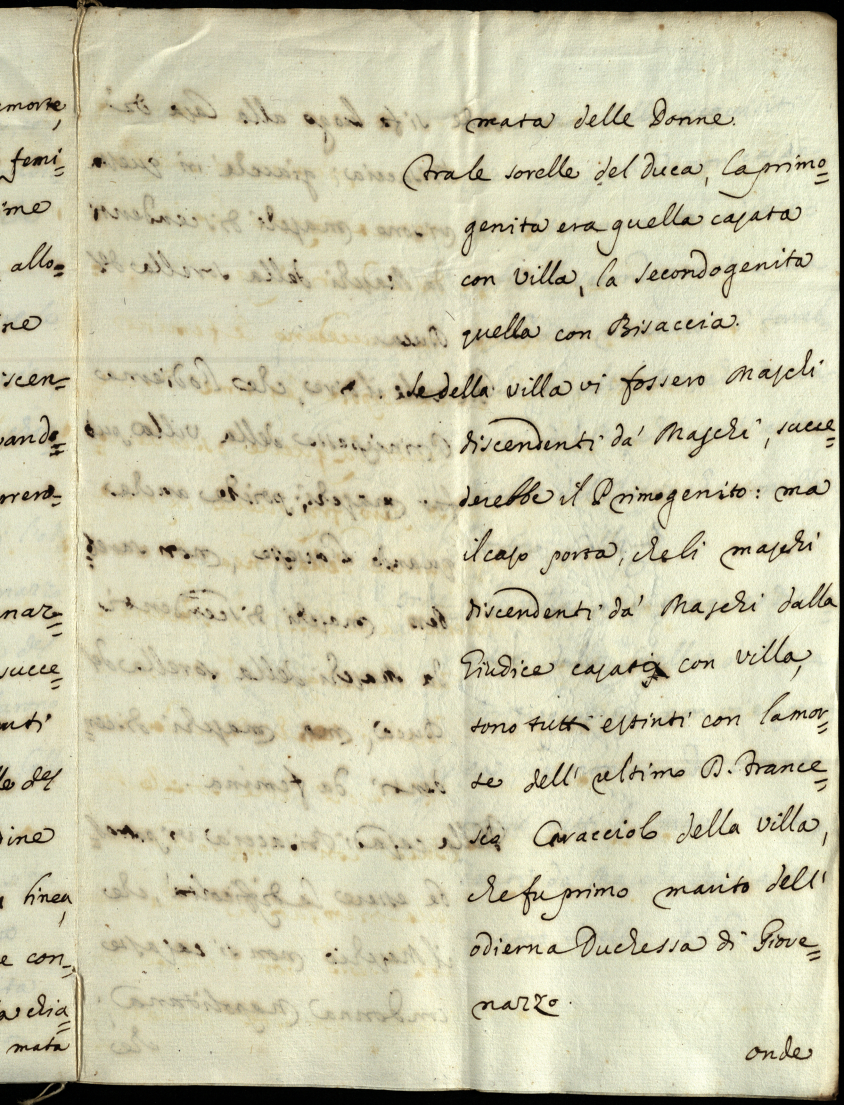 emorte,
femi=
ime
allo=
ne
iscen=
uando=
rrero=
nar=
succe=
nti
le del
dine
linea,
e con=
a chia=
mata
mata delle Donne.
Tra le sorelle del Duca, la primo=
genita era quella casata
con Villa, la secondogenita
quella con Bisaccia.
Se della Villa vi fossero Maschi
discendenti da' Maschi, succe=
derebbe il Primogenito: ma
il caso porta, che li maschi
discendenti da' Maschi dalla
Giudice casata con Villa,
sono tutti estinti con la mor=
te dell' ultimo D. France=
sco Caracciolo della Villa,
che fu primo marito dell'
odierna Duchessa di Giove=
nazzo.
onde